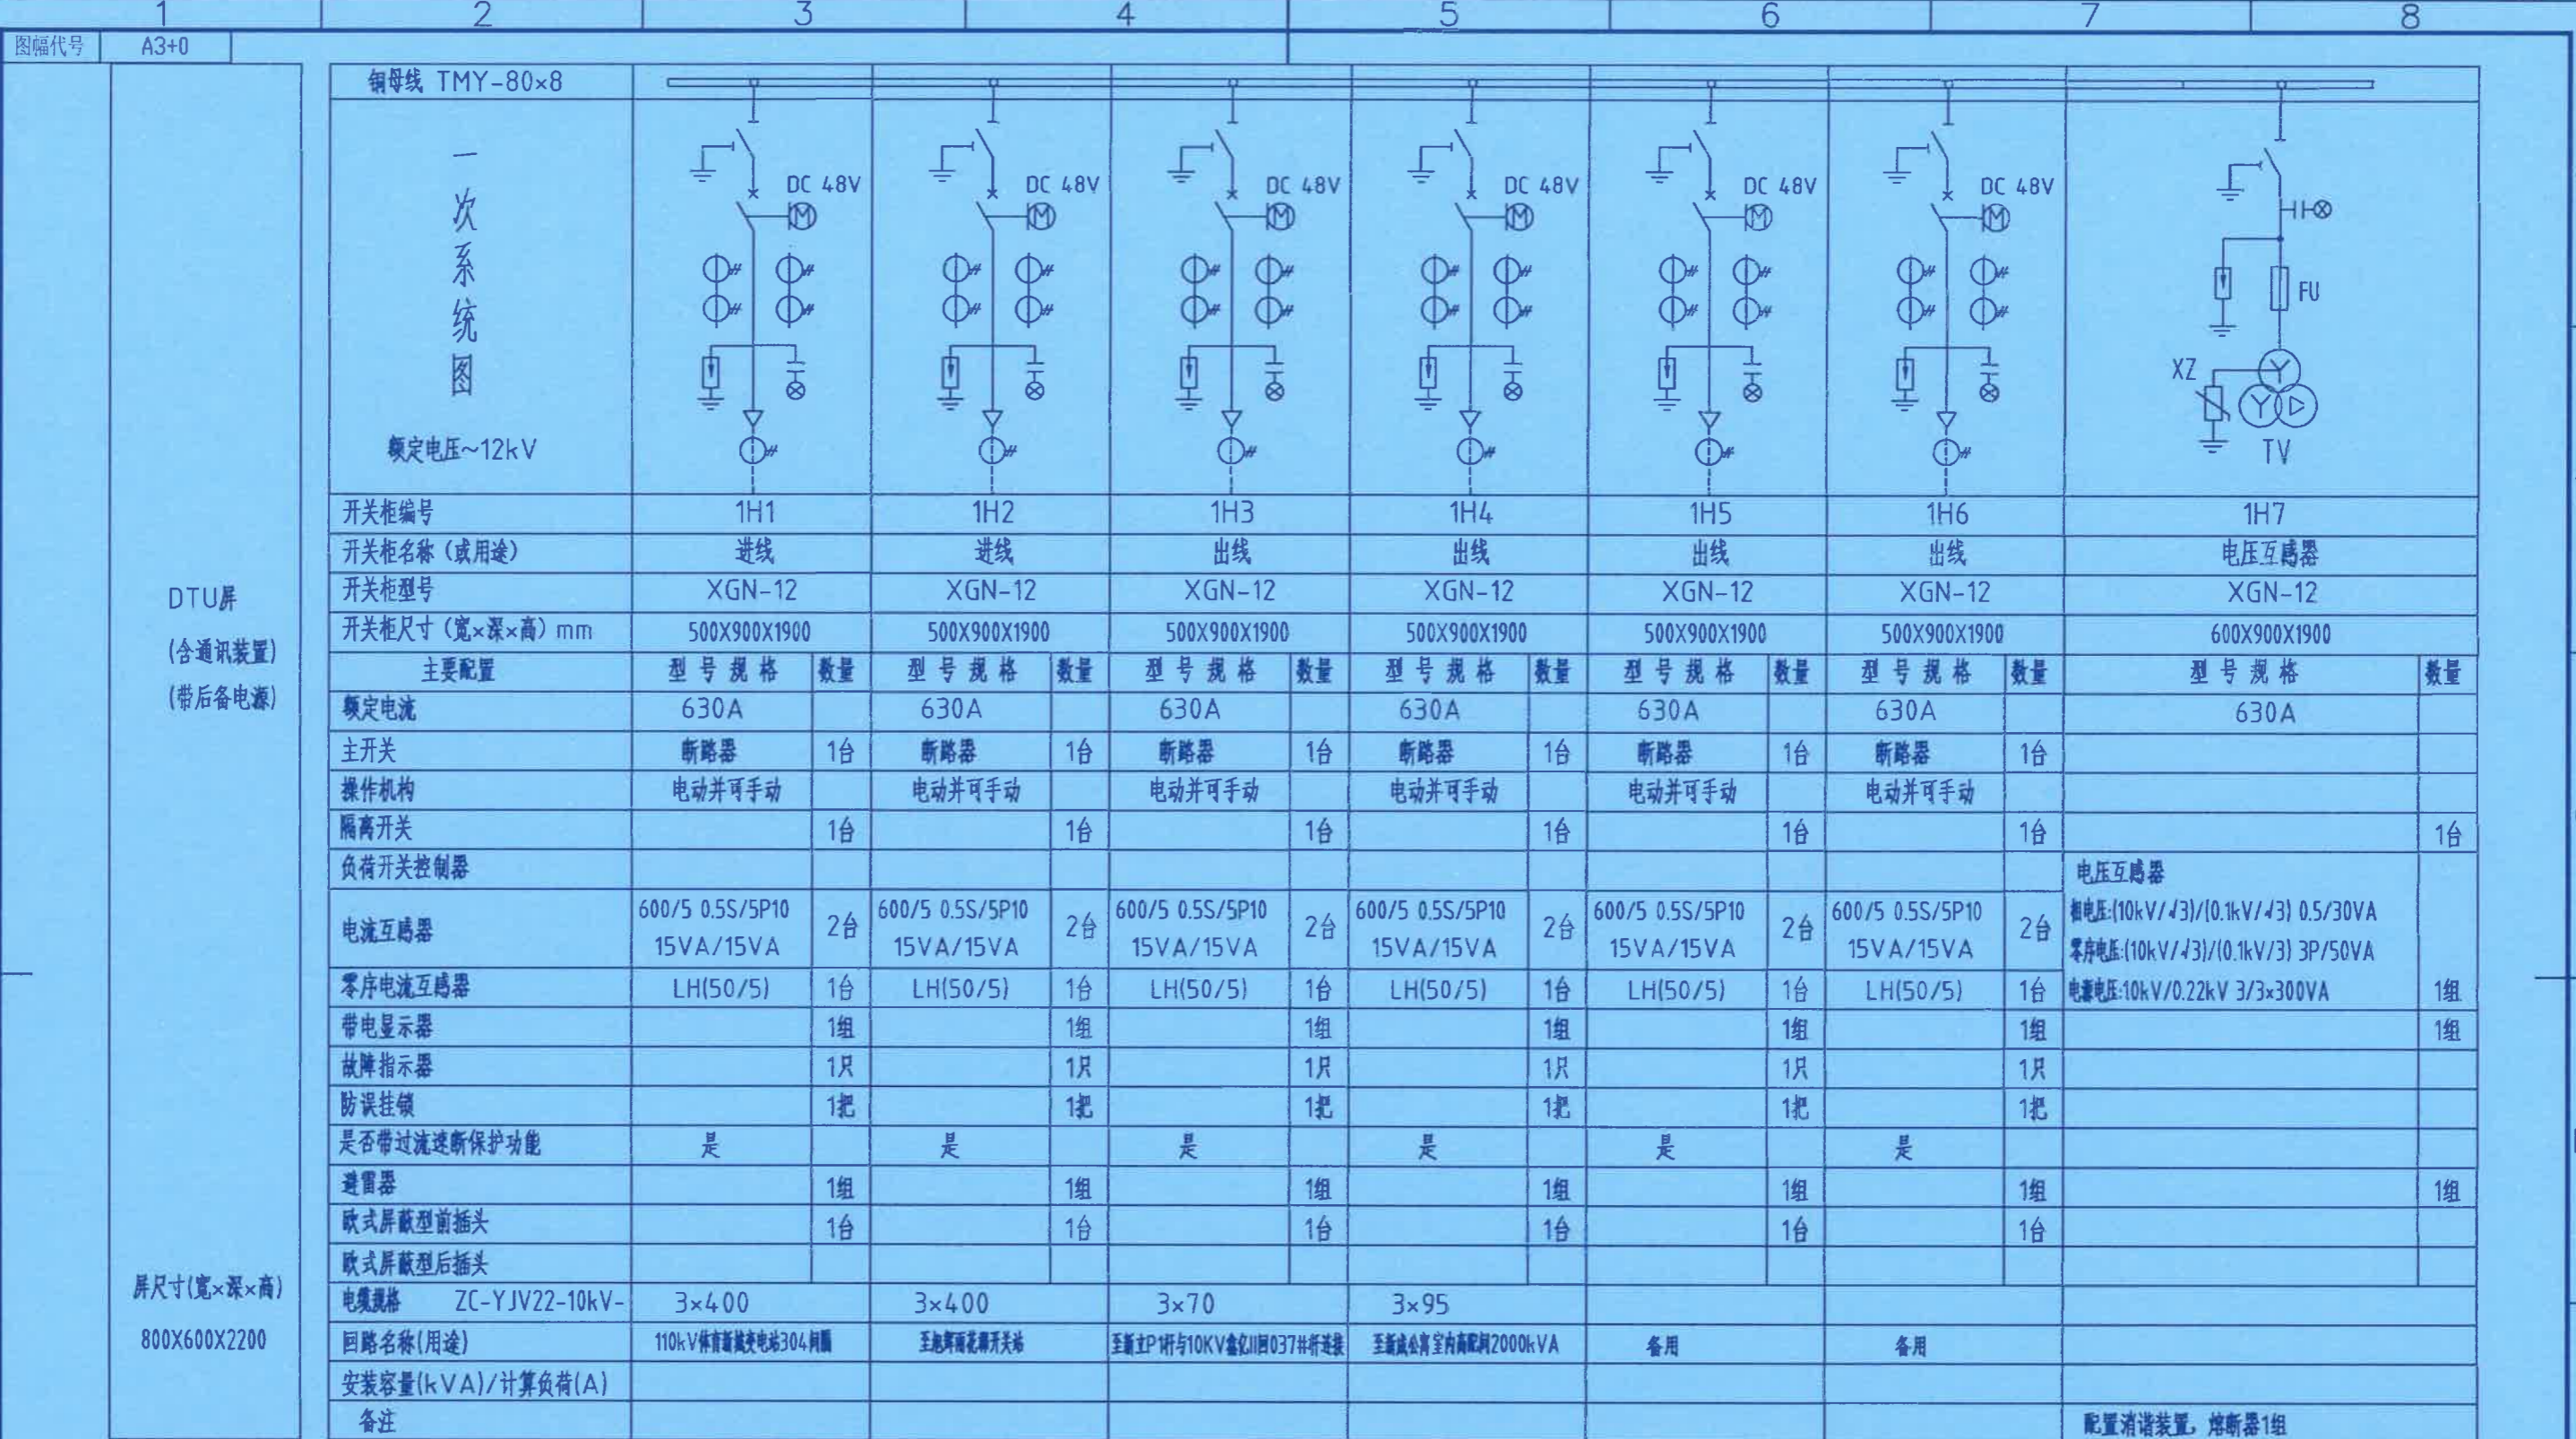 1 2 3 4 5 6 7 8
图幅代号 A3+0
铜母线 TMY-80×8
一次系统图
额定电压~12kV
DC 48V DC 48V DC 48V DC 48V DC 48V DC 48V
M M M M M M
FU
XZ
TV
开关柜编号 1H1 1H2 1H3 1H4 1H5 1H6 1H7
开关柜名称（或用途） 进线 进线 出线 出线 出线 出线 电压互感器
开关柜型号 XGN-12 XGN-12 XGN-12 XGN-12 XGN-12 XGN-12 XGN-12
开关柜尺寸（宽×深×高）mm 500X900X1900 500X900X1900 500X900X1900 500X900X1900 500X900X1900 500X900X1900 600X900X1900
主要配置 型号规格 数量 型号规格 数量 型号规格 数量 型号规格 数量 型号规格 数量 型号规格 数量 型号规格 数量
额定电流 630A 630A 630A 630A 630A 630A 630A
主开关 断路器 1台 断路器 1台 断路器 1台 断路器 1台 断路器 1台 断路器 1台
操作机构 电动并可手动 电动并可手动 电动并可手动 电动并可手动 电动并可手动 电动并可手动
隔离开关 1台 1台 1台 1台 1台 1台 1台
负荷开关控制器 电压互感器
电流互感器 600/5 0.5S/5P10 15VA/15VA 2台 600/5 0.5S/5P10 15VA/15VA 2台 600/5 0.5S/5P10 15VA/15VA 2台 600/5 0.5S/5P10 15VA/15VA 2台 600/5 0.5S/5P10 15VA/15VA 2台 600/5 0.5S/5P10 15VA/15VA 2台
相电压:(10kV/√3)/(0.1kV/√3) 0.5/30VA
零序电压:(10kV/√3)/(0.1kV/3) 3P/50VA
零序电流互感器 LH(50/5) 1台 LH(50/5) 1台 LH(50/5) 1台 LH(50/5) 1台 LH(50/5) 1台 LH(50/5) 1台 电源电压:10kV/0.22kV 3/3×300VA 1组
带电显示器 1组 1组 1组 1组 1组 1组 1组
故障指示器 1只 1只 1只 1只 1只 1只
防误挂锁 1把 1把 1把 1把 1把 1把
是否带过流速断保护功能 是 是 是 是 是 是
避雷器 1组 1组 1组 1组 1组 1组 1组
欧式屏蔽型前插头 1台 1台 1台 1台 1台 1台
欧式屏蔽型后插头
电缆规格 ZC-YJV22-10kV- 3×400 3×400 3×70 3×95
回路名称(用途) 110kV体育新城变电站304间隔 开关站 至新立P1杆与10KV 037#杆连接 公寓室内高配间2000kVA 备用 备用
安装容量(kVA)/计算负荷(A)
备注 配置消谐装置，熔断器1组
DTU屏
(含通讯装置)
(带后备电源)
屏尺寸(宽×深×高)
800X600X2200